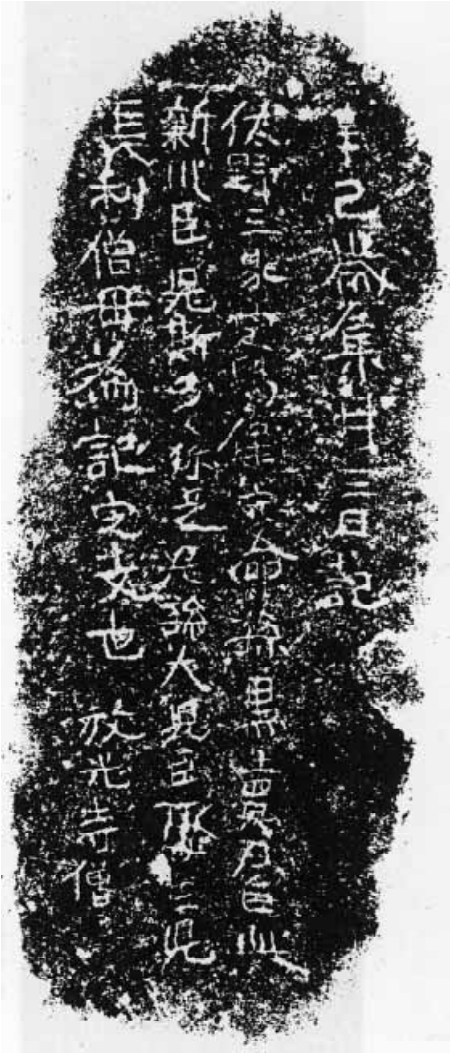 辛己歳集月三日記
佐野三家定賜健守命孫黒賣刀自此
新川臣兒斯多々弥足尼孫大兒臣娶生兒
長利僧母為記定文也 放光寺僧